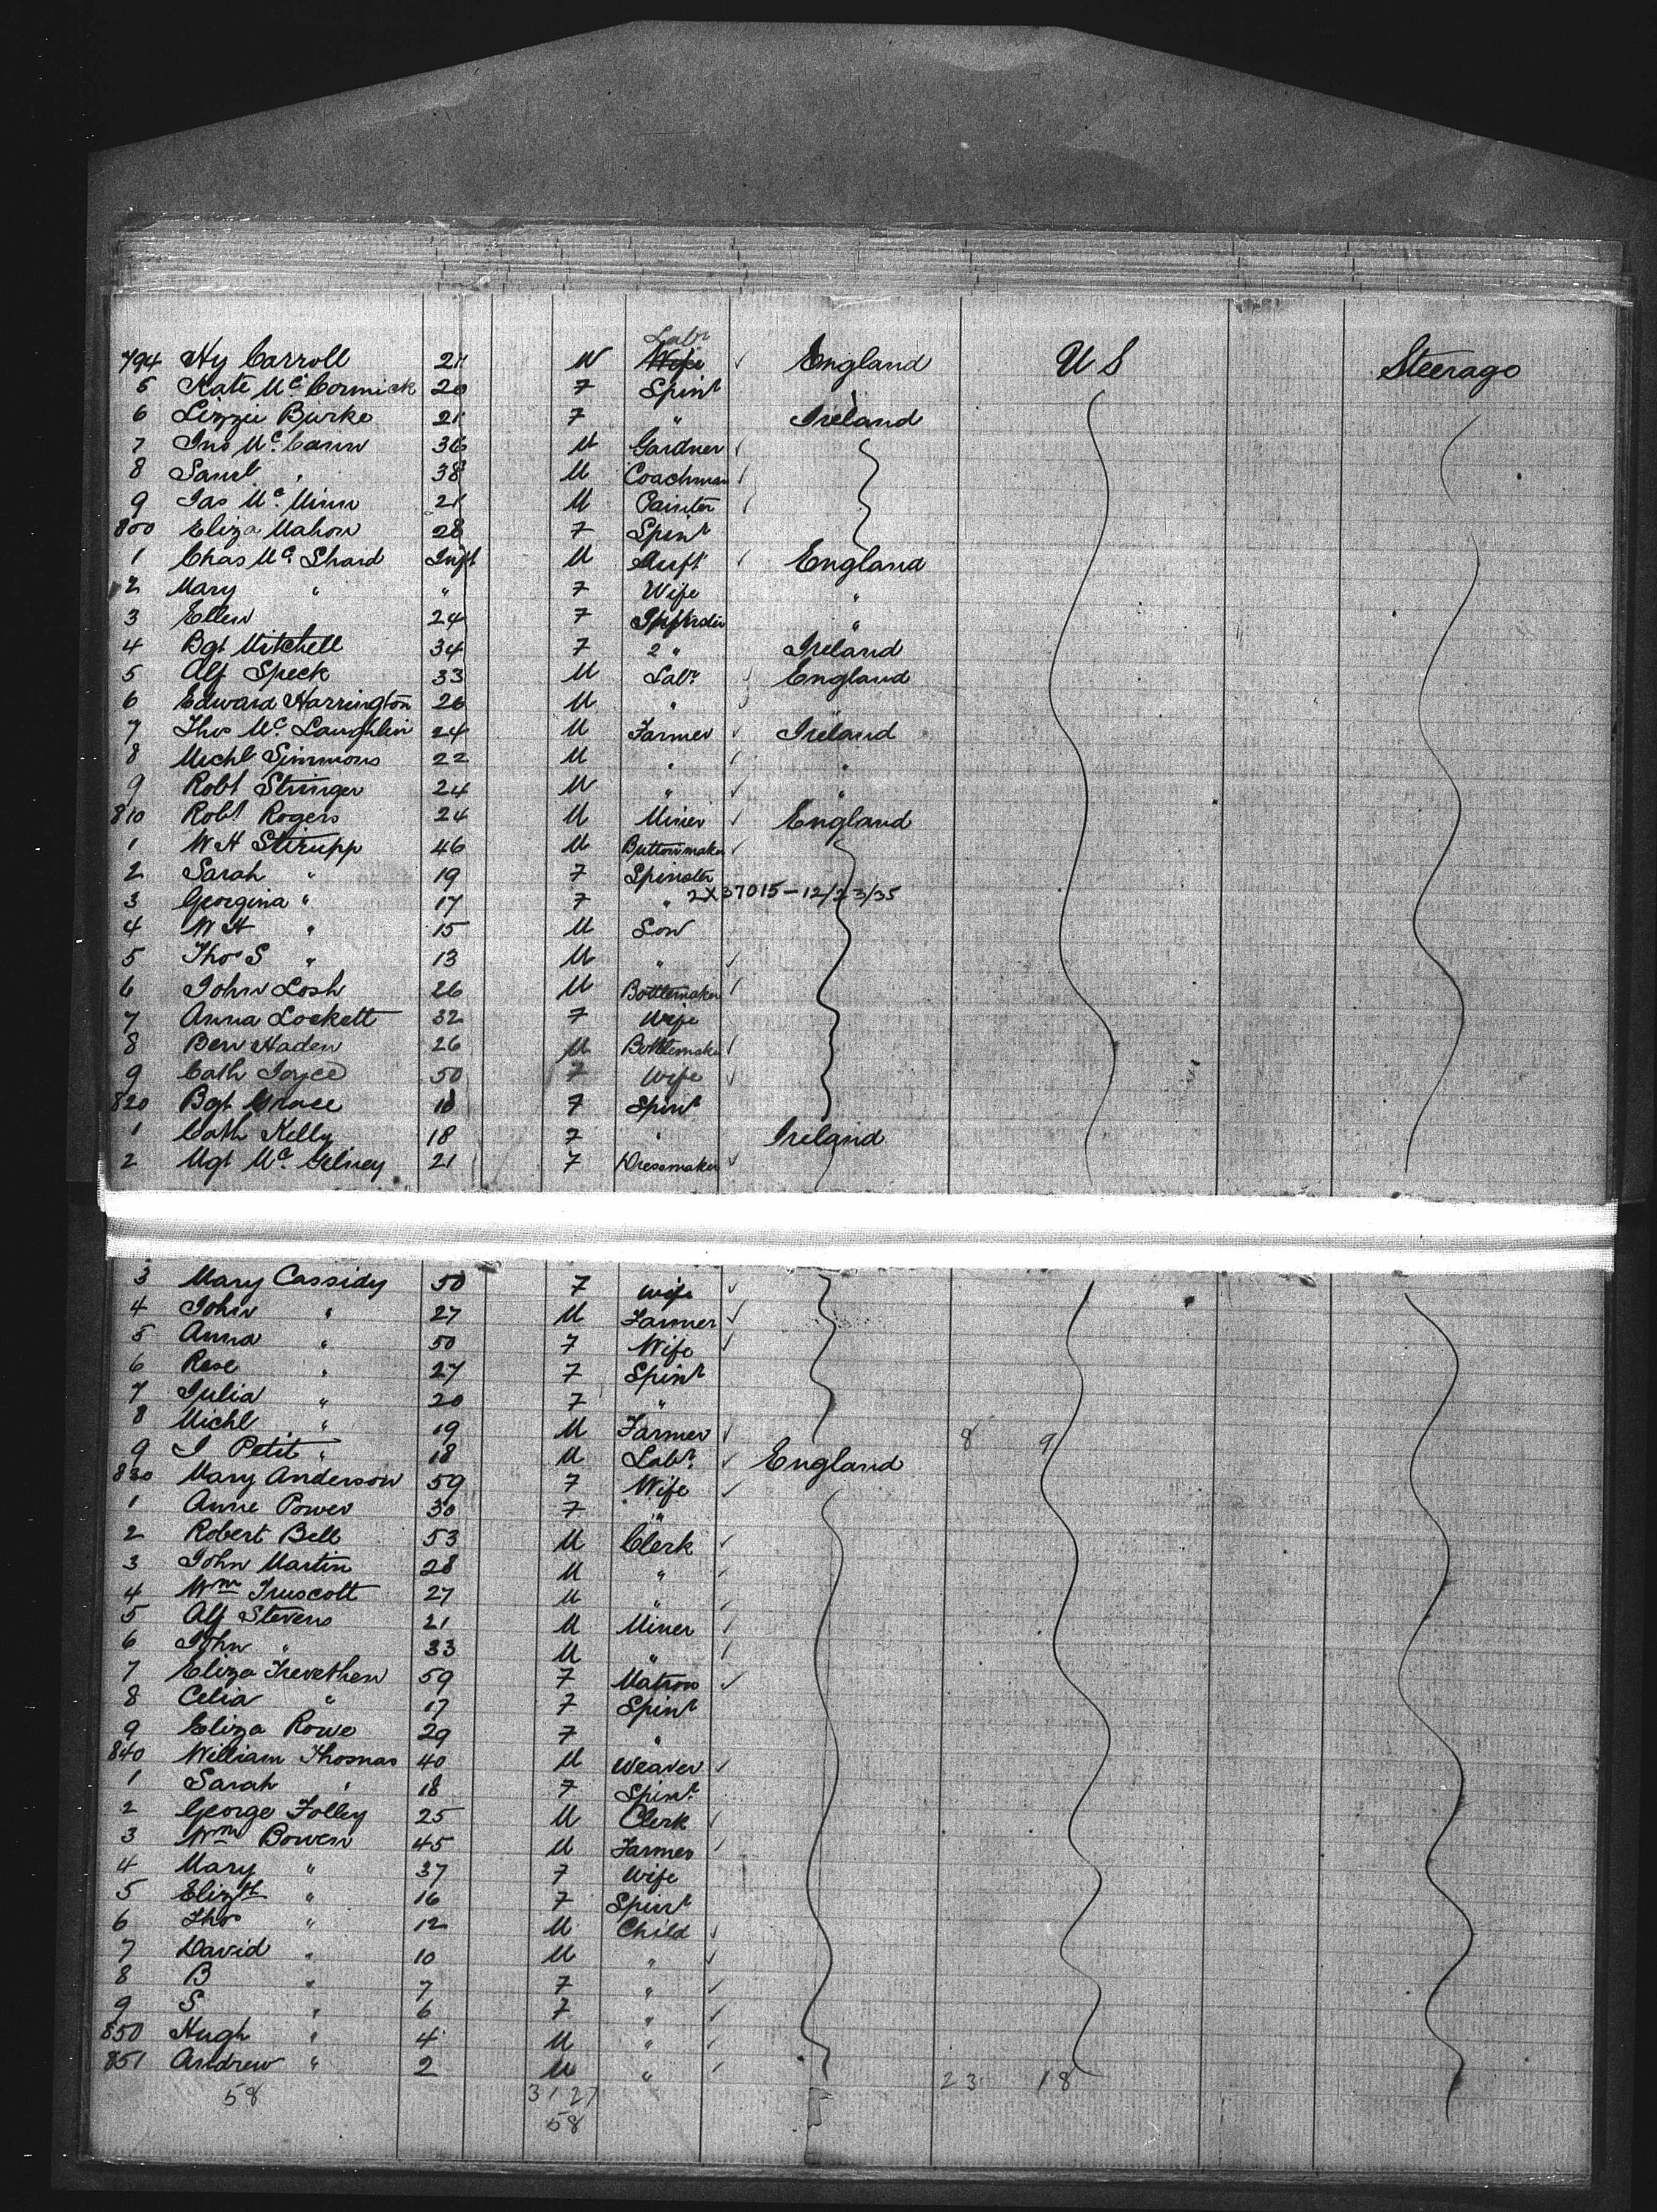 794 Hy Carroll 21 M Wife Labr England U S Steerage
5 Kate Mc Cormick 20 F Spinr
6 Lizzie Burke 21 F " Ireland
7 Jno Mc Cann 36 M Gardner
8 Saml " 38 M Coachman
9 Jas Mc Minn 21 M Painter
800 Eliza Mahon 28 F Spinr
1 Chas Mc Shard Inft M Inft England
2 Mary " " F Wife "
3 Ellen 24 F "
4 Bgt Mitchell 34 F 2 " Ireland
5 Alf Speck 33 M Labr England
6 Edward Harrington 26 M " "
7 Thos Mc Laughlin 24 M Farmer Ireland
8 Michl Simmons 22 M " "
9 Robt Stringer 24 M " "
810 Robt Rogers 24 M Miner England
1 W H Stirupp 46 M Buttonmaker
2 Sarah " 19 F Spinster
3 Georgina " 17 F " 2X37015-12/23/35
4 W H " 15 M Son
5 Thos S " 13 M "
6 John Losh 26 M Bottlemaker
7 Anna Lockett 32 F Wife
8 Ben Haden 26 M Bottlemaker
9 Cath Joyce 50 F Wife
820 Bgt Grace 18 F Spinr
1 Cath Kelly 18 F " Ireland
2 Mgt Mc 21 F Dressmaker
3 Mary Cassidy 50 F Wife
4 John " 27 M Farmer
5 Anna " 50 F Wife
6 Rose " 27 F Spinr
7 Julia " 20 F "
8 Michl " 19 M Farmer 8 9
9 J Petit " 18 M Labr England
830 Mary Anderson 59 F Wife
1 Anne Power 30 F "
2 Robert Bell 53 M Clerk
3 John Martin 28 M "
4 Wm Truscott 27 M "
5 Alf Stevens 21 M Miner
6 John " 33 M "
7 Eliza Trevethen 59 F Matron
8 Celia " 17 F Spinr
9 Eliza Rowe 29 F "
840 William Thomas 40 M Weaver
1 Sarah " 18 F Spinr
2 George Folley 25 M Clerk
3 Wm Bowen 45 M Farmer
4 Mary " 37 F Wife
5 Elizth " 16 F Spinr
6 Thos " 12 M Child
7 David " 10 M "
8 B " 7 F "
9 S " 6 F "
850 Hugh " 4 M "
851 Andrew " 2 M "
58 31 27 23 18
58